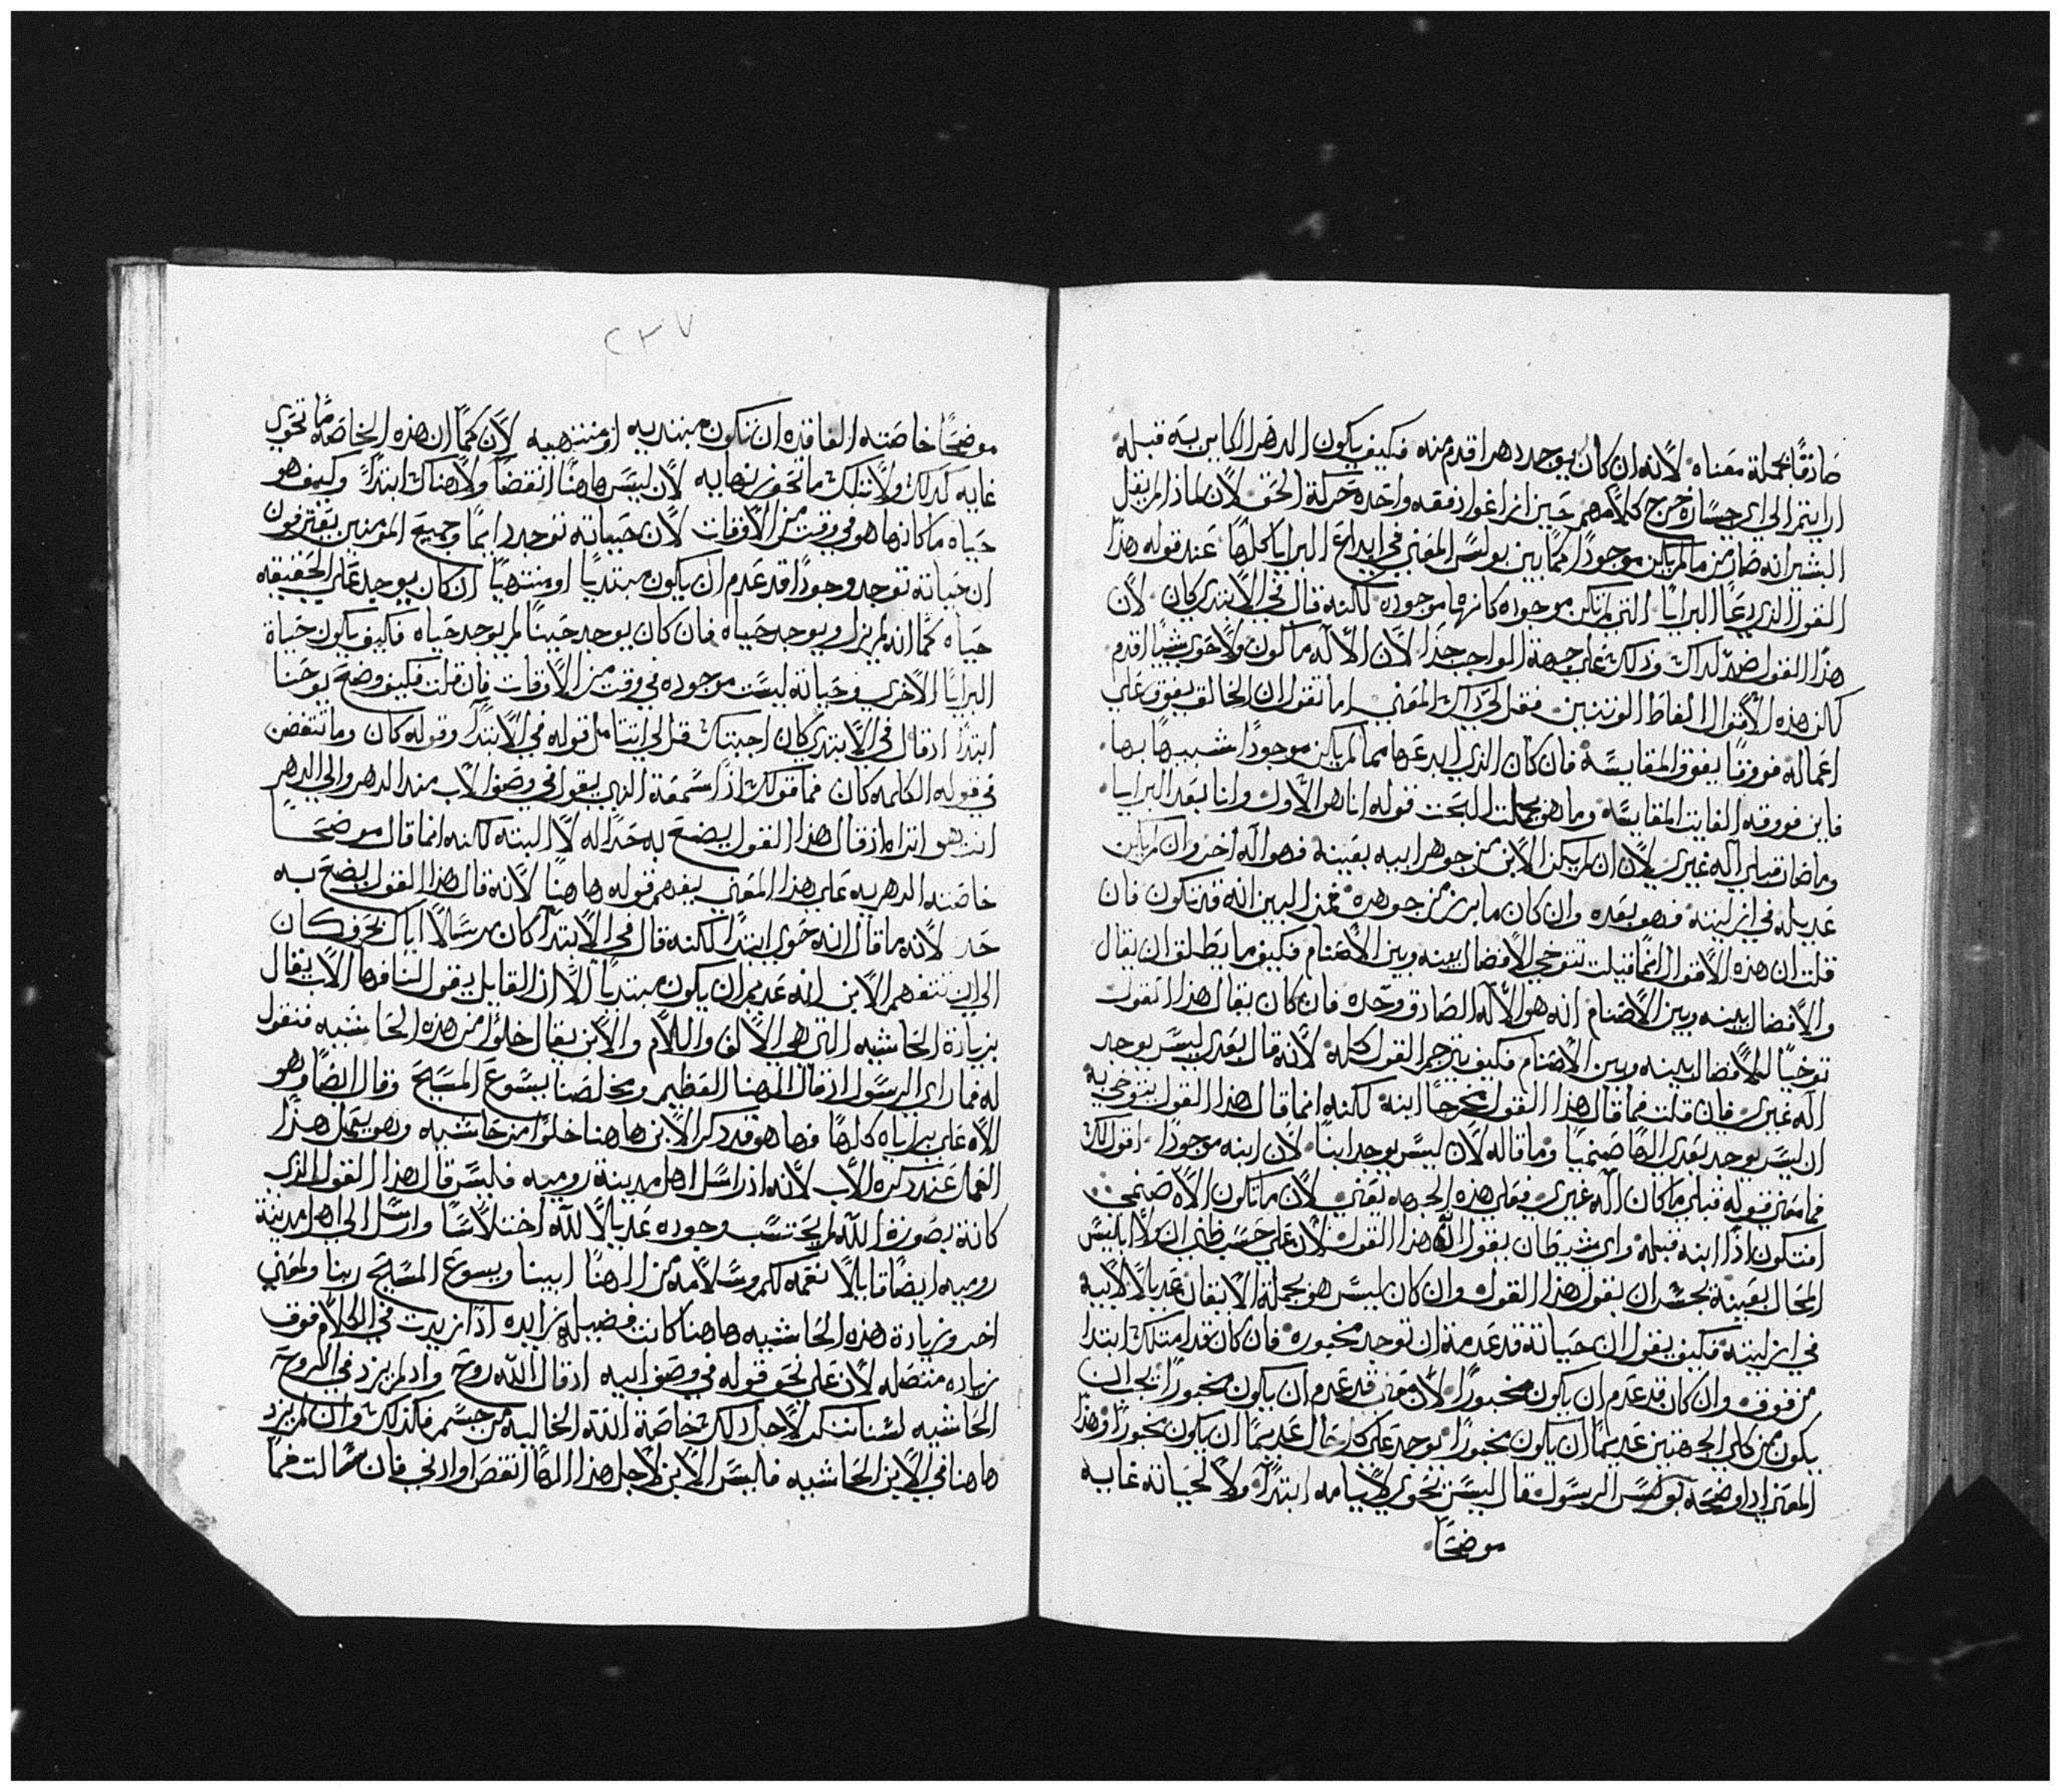 صادقًا بجملة معناه لانه ان كان يوجد دهر اقدم منه فكيف يكون الدهر الكاين به قبله
ارايتم الي اي خسارة خرج كلامهم حين ازاغوا دفعه واحده حركة الحق لان لماذا لم يقل
البشير انه صار من ما لم يكن موجودًا كما بين بولس المعني في ابداع البرايا كلها عند قوله هذا
القول الذي دعا البرايا التي لم تكن موجوده كانها موجوده لكنه قال في الابتدي كان لان
هذا القول ضد لداك وذلك علي جهة الواجب جدا لان الاله ما كون ولا حوي شيًا اقدم
لكن هذه الاقوال الفاظ الوثنيين فقل لي ذاك المعني اما تقول ان الخالق يفوق علي
اعماله فووقًا يفوق المقايسة فان كان الذي ابدعها مما لم يكن موجودًا شبيهًا بها
فاين فووقه الفايت المقايسة وما هو بجملت البحت قوله انا هو الاول وانا بعد البرايا
وما صار قبلي اله غيري لان ان لم يكن الابن من جوهر ابيه بعينه فهو اله اخر وان لم يكن
عديله في ازليته فهو بعده وان كان ما برز من جوهره فمن البين انه قد تكون فان
قلت ان هذه الاقوال انما قيلت بتوخي الافصال بينه وبين الاصنام فكيف ما يطلق ان يقال
والافصال بينه وبين الاصنام انه هو الاله الصادق وحده فان كان يقال هذا القول
توخيًا للافصال بينه وبين الاصنام فكيف يترجم القول كله لانه قال بعدي ليس يوجد
اله غيري فان قلت فما قال هذا القول مخرجًا ابنه لكنه انما قال هذا القول يتوخي به
ان ليس يوجد بعدي الهًا صنميًا وما قاله لان ليس يوجد ابنًا لان ابنه موجودًا اقول لك
فما معني قوله قبلي ما كان اله غيري فعلي هذه الجهه تعني لان ما تكون الاه صنمي
افتكون اذًا ابنه قبله واي شيطان يقول هذا القول لان علي حسب ظني ان ولا ابليس
المحال بعينه يجسر ان يقول هذا القول وان كان ليس هو بجملة الاتقان عديلًا لابيه
في ازليته فكيف يقول ان حياته قد عدمت ان توجد مخبوره فان كان قد امتلك ابتدا
من فوق وان كان قد عدم ان يكون مخبورًا لان معني قد عدم ان يكون مخبورًا يجب ان
يكون من كلي الجهتين عديمًا ان يكون مخبورًا يوجد علي كل حال عديمًا ان يكون مخبورًا وهذا
المعني اذ اوضحه بولس الرسول قال ليس تحوي ايامه ابتدًا ولا لحياته غايه
موضحًا
٢٣٧
موضحًا خاصته الفاقده ان تكون مبتديه او منتهيه لان كما ان هذه الخاصه ما تحوي
غايه كذلك ولا تلك ما تحوي نهايه لان ليس هاهنا انقضًا ولا هناك ابتدًا وكيف هو
حياه ما كانها هو في وقت من الاوقات لان حياته توجد دايمًا وجميع المومنين يعترفون
ان حياته توجد وجودًا قد عدم ان يكون مبتديًا او منتهيًا ان كان يوجد علي الحقيقه
حياه كما انه لم يزل ويوجد حياه فان كان يوجد حينًا لم يوجد حياه فكيف يكون حياة
البرايا الاخري وحياته ليست موجوده في وقت من الاوقات فان قلت فكيف وضح يوحنا
ابتدًا اذ قال في الابتدي كان اجبتك قل لي اتتامل قوله في الابتدا وقوله كان وما تتفطن
في قوله الكلمه كان فما قولك اذا سمعة النبي يقول في وصف الاب منذ الدهر والي الدهر
انت هو اتراه اذ قال هذا القول يضح به حدًا له لا البته لكنه انما قال موضحًا
خاصته الدهريه علي هذا المعني يفهم قوله هاهنا لانه قال هذا القول ليضح به
حد لانه ما قال انه حوي ابتدًا لكنه قال في الابتدا كان مرسلًا اياك بحرف كان
الي ان تتفهم الابن انه عديم ان يكون مبتديًا الا ان القايل يقول لنا فها الاب يقال
بزيادة الحاشيه التي هي الالف واللام والابن يقال خلوًا من هذه الحاشيه فنقول
له فما راي الرسول اذ قال الهنا العظيم ومخلصنا يسوع المسيح وقال ايضًا وهو
الاه علي براياه كلها فها هو قد ذكر الابن هاهنا خلوًا من حاشيه وهو يعمل هذا
العمل عند ذكره الاب لانه اذ راسل اهل مدينة روميه فليس قال هذا القول الذي
كانه بصورة الله لم يحتسب وجوده عديلًا لله اختلاسًا وارسل الي اهل مدينة
روميه ايضًا قايلًا نعمه لكم وسلامه من الهنا ابينا ويسوع المسيح ربنا ولمعني
اخر وزيادة هذه الحاشيه هاهنا كانت فضيله زايده اذا زيدت في الكلام فوق
زياده متصله لان علي نحو قوله في وصف ابيه اذ قال الله روح واذ لم يزد في الروح
الحاشيه لسنا ننكر لاجل ذلك خاصة الله الخاليه من جسم فكذلك وان لم يزد
هاهنا في الابن الحاشيه فليس الابن لاجل هذا الهًا انقص او ادني فان سالت فما